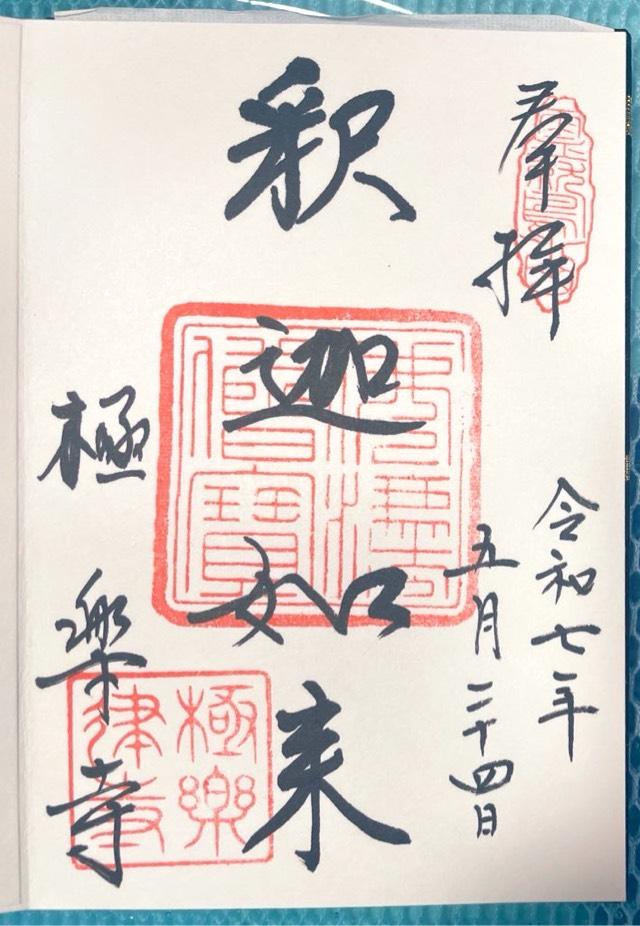 奉拝
令和七年
五月二十四日
釈迦如来
佛法僧寶
極楽寺
極樂律寺